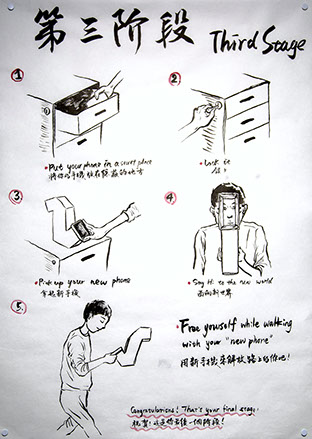 第三阶段 Third Stage
①
②
• Put your phone in a secret place
将你的手机放在隐蔽的地方
• Lock it
③
④
• Pick up your new phone
拿起新手机
• Say Hi to the new world
面向新世界
⑤
• Free yourself while walking
with your "new phone"
用新手机来解放路上的你吧!
Congratulations! That's your final stage.
祝贺! 这是你最后一个阶段!